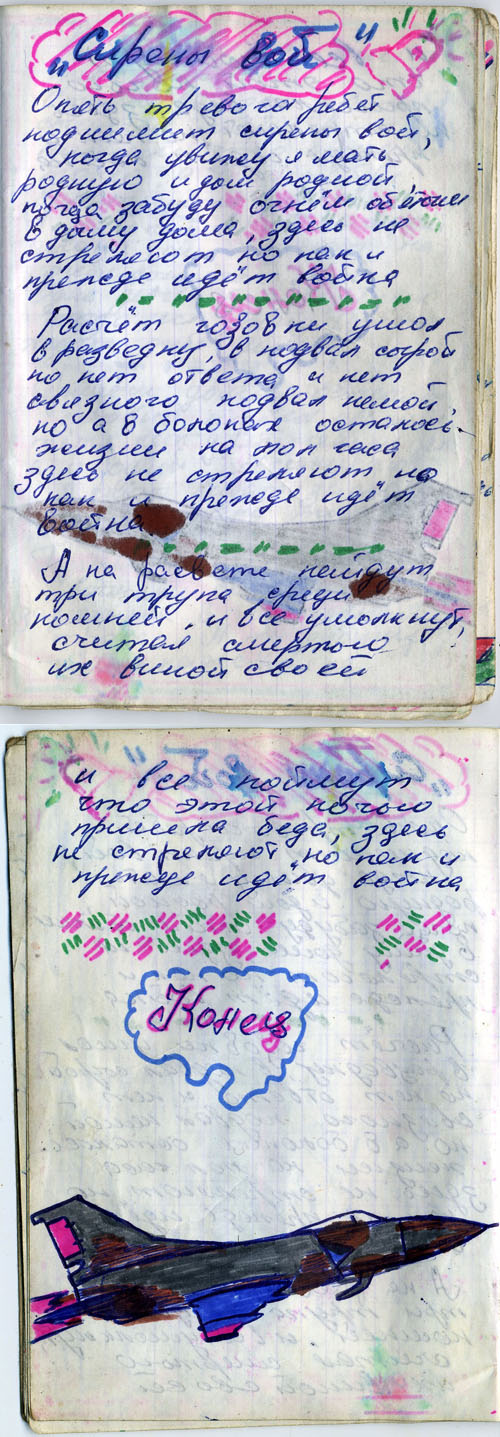 "Сирены вой"
Опять тревога ребят
поднимет сирены вой,
когда увижу я мать
родную и дом родной,
когда забуду огнём объятые
в дыму дома, здесь не
стреляют но как и
прежде идёт война
Расчёт ушол
в разведку, в подвал сырой
но нет ответа и нет
связного подвал немой,
но а в болонах осталось
жизни на пол часа
здесь не стреляют но
как и прежде идёт
война
А на расвете найдут
три трупа среди
камней, и все умолкнут,
считая смертью
их виной своей
и все поймут
что этой ночью
пришла беда, здесь
не стреляют но как и
прежде идёт война
Конец